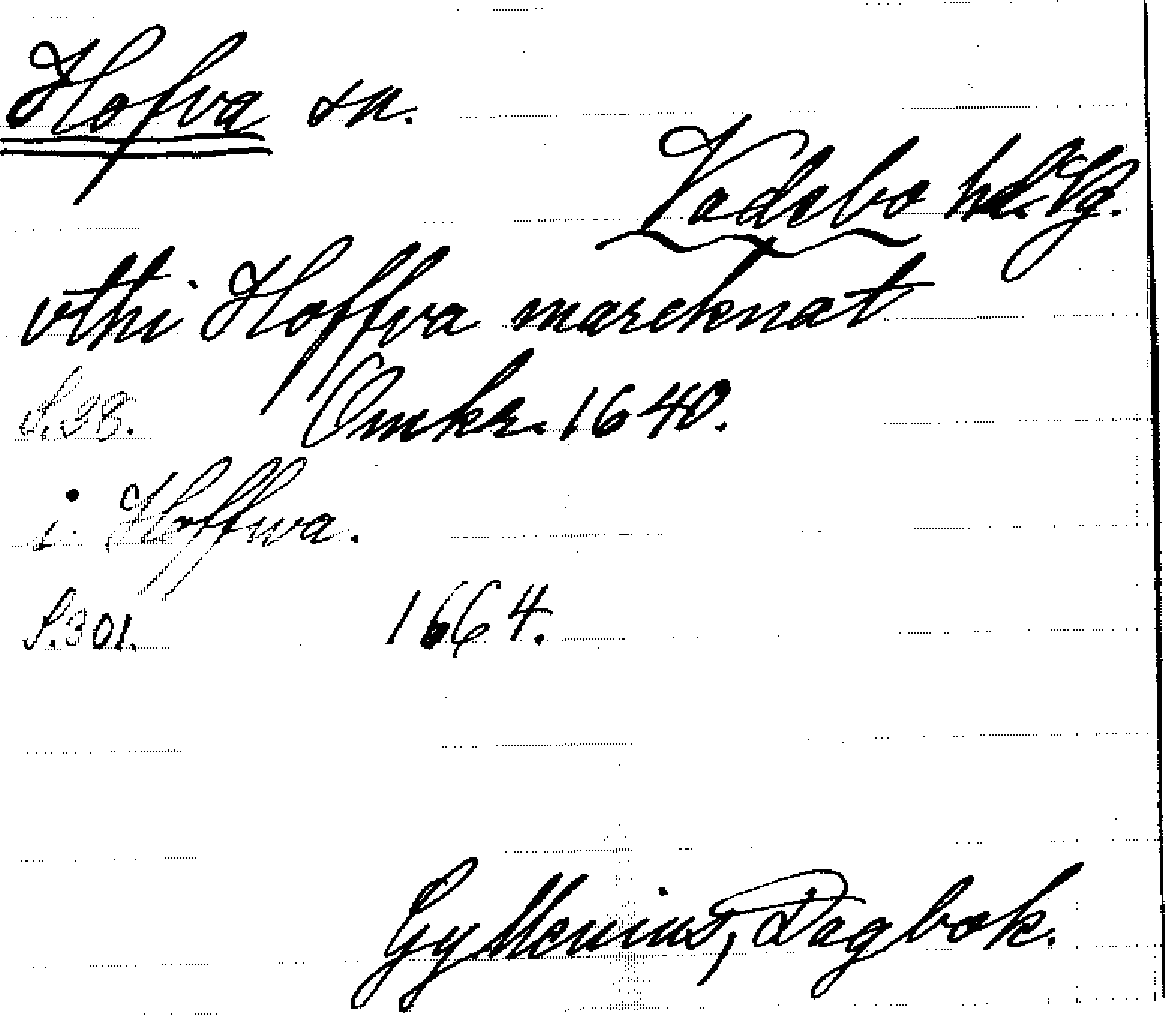 Hofva sn.
Vadsbo hd. Vg.
vthi Hoffva marcknat
S. 98. Omkr. 1640.
i Hoffwa.
S. 301. 1664.
Gyllenius, Dagbok.